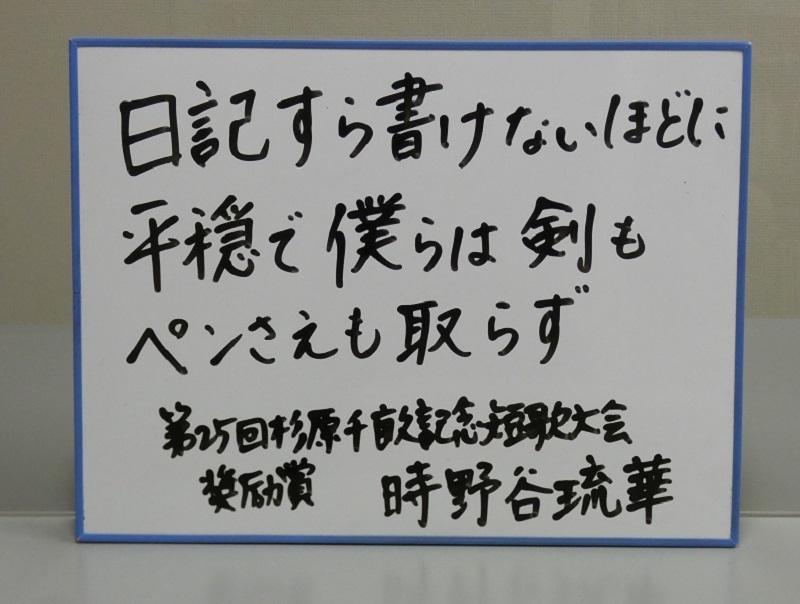 日記すら書けないほどに
平穏で僕らは剣も
ペンさえも取らず
第25回杉原千畝記念短歌大会
奨励賞 時野谷琉華